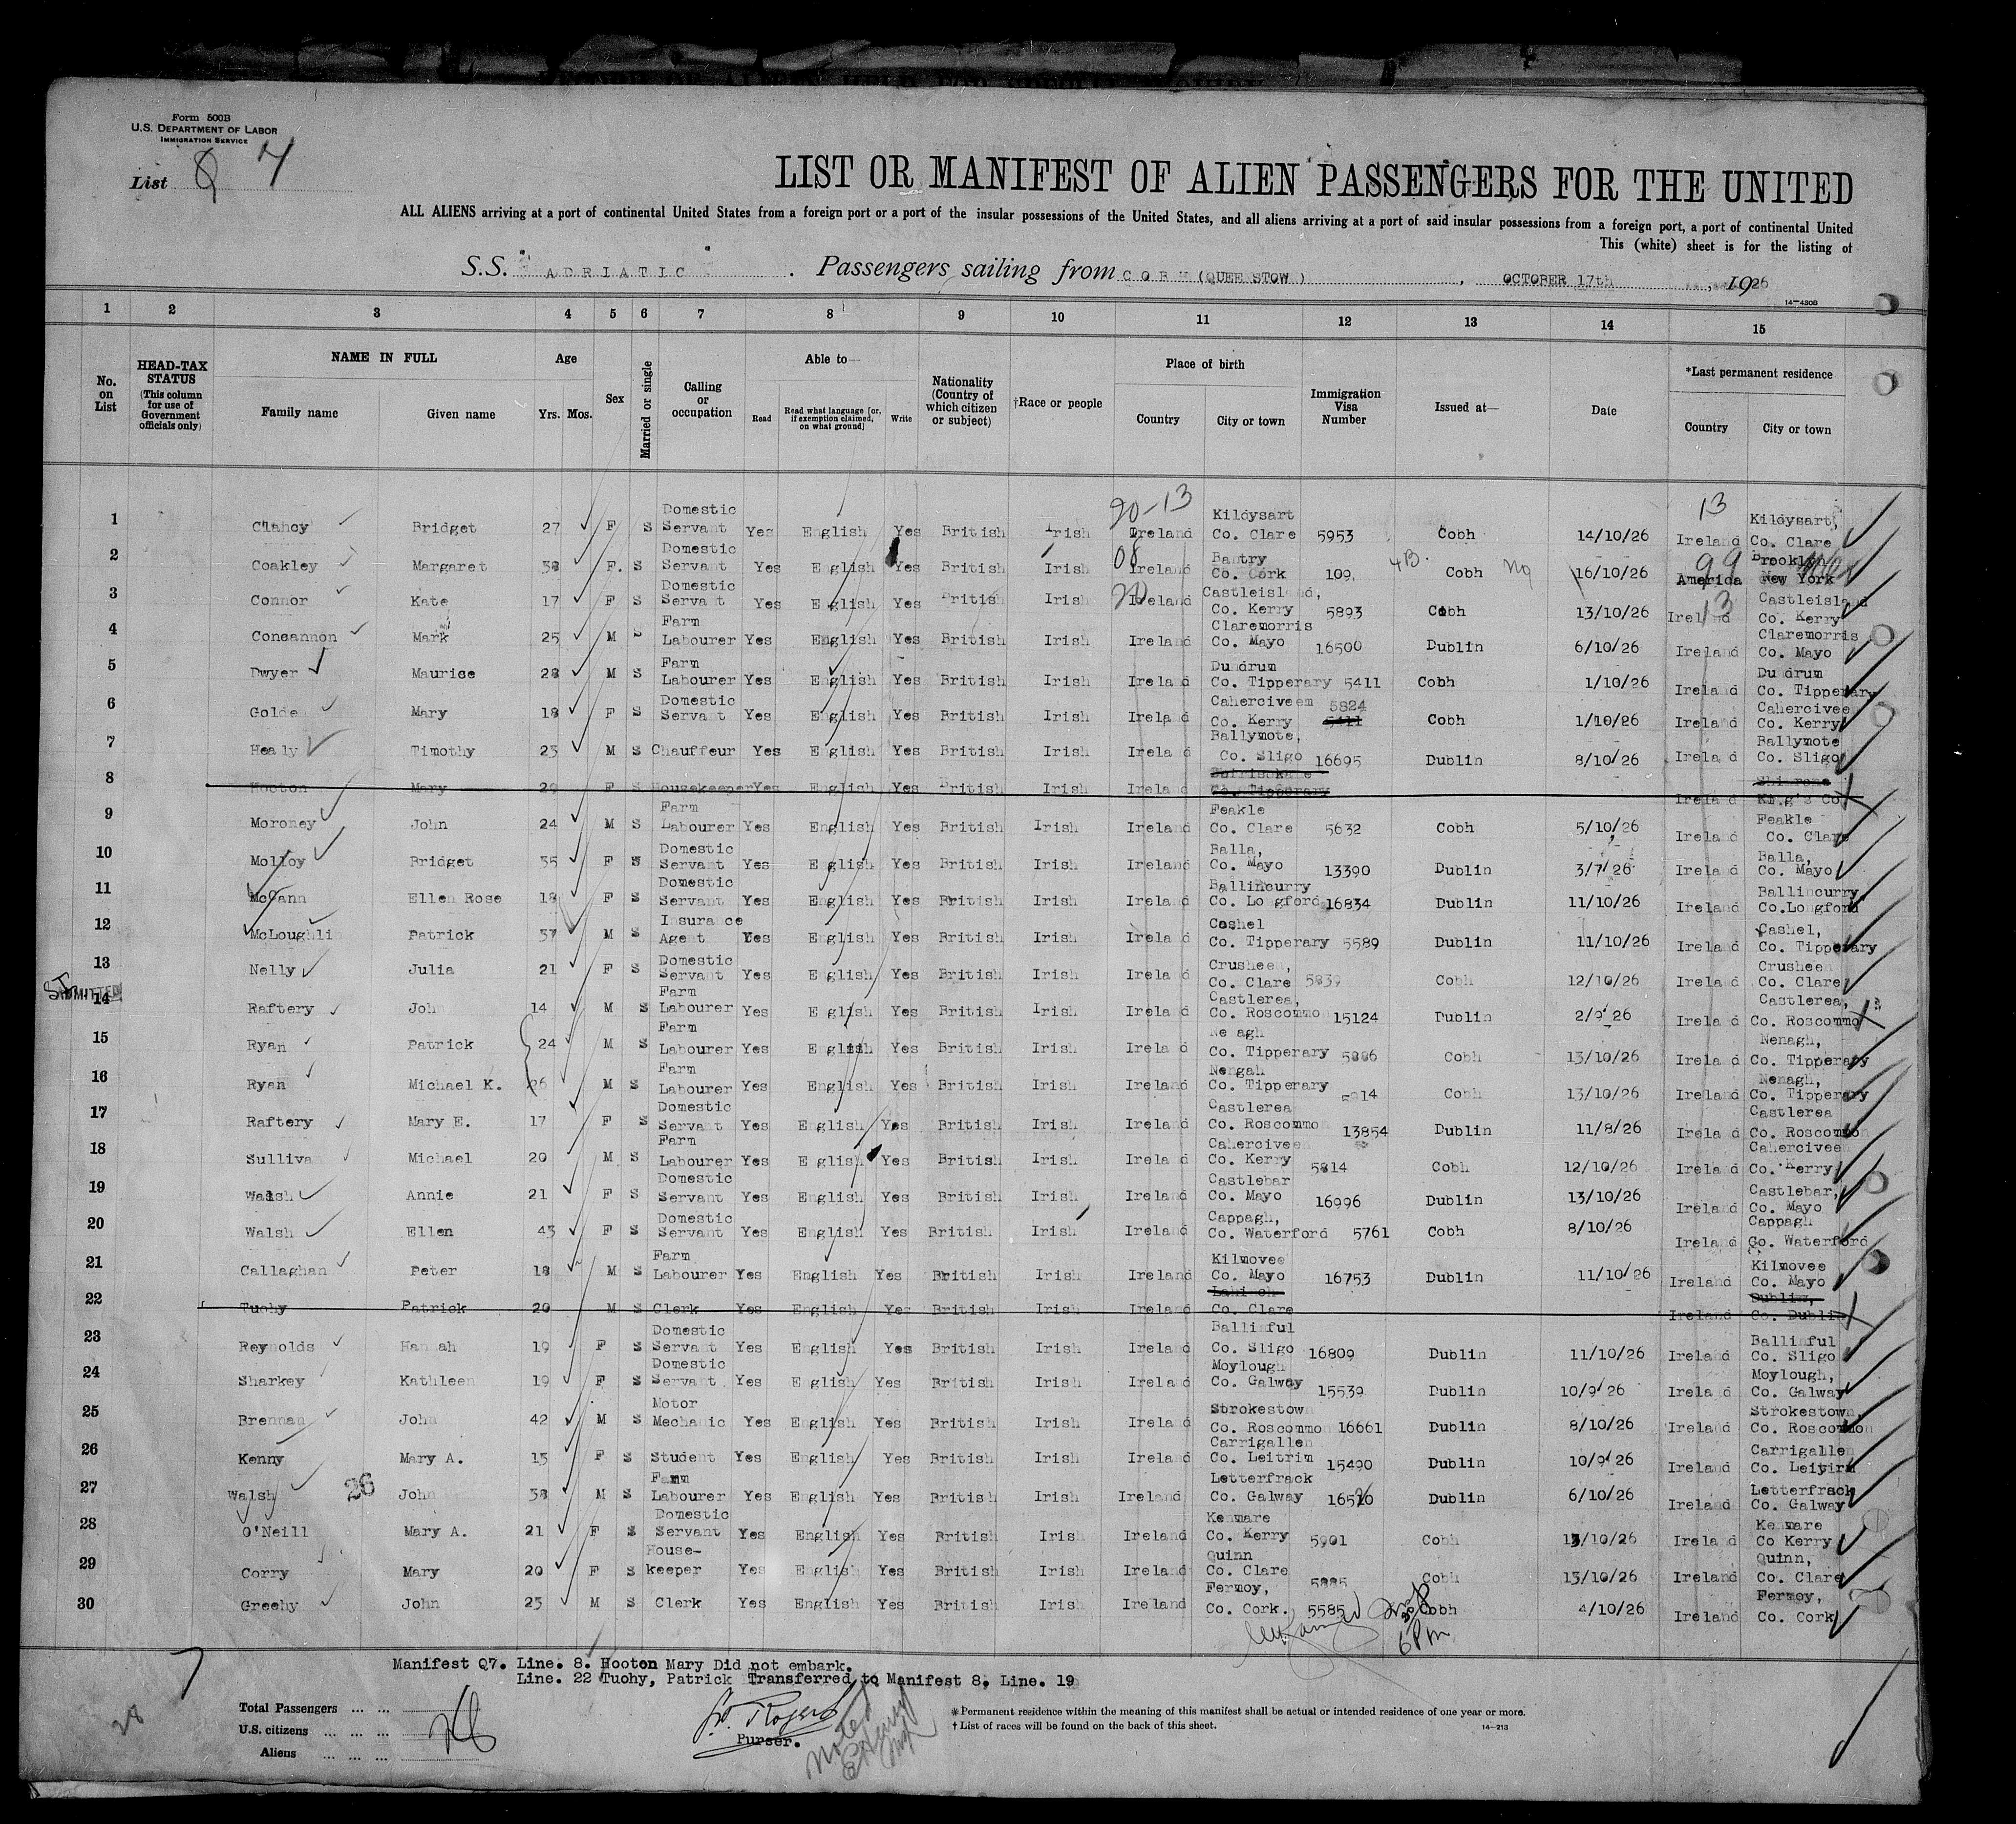 Form 500B
U.S. DEPARTMENT OF LABOR
IMMIGRATION SERVICE
List 7
LIST OR MANIFEST OF ALIEN PASSENGERS FOR THE UNITED
ALL ALIENS arriving at a port of continental United States from a foreign port or a port of the insular possessions of the United States, and all aliens arriving at a port of said insular possessions from a foreign port, a port of continental United
This (white) sheet is for the listing of
S.S. ADRIATIC . Passengers sailing from COBH (QUEENSTOWN) , OCTOBER 17th , 1926
14—430B
1 2 3 4 5 6 7 8 9 10 11 12 13 14 15
No. on List
HEAD-TAX STATUS (This column for use of Government officials only)
NAME IN FULL
Family name Given name
Age Yrs. Mos.
Sex
Married or single
Calling or occupation
Able to—
Read Read what language [or, if exemption claimed, on what ground] Write
Nationality (Country of which citizen or subject)
†Race or people
Place of birth
Country City or town
Immigration Visa Number
Issued at—
Date
*Last permanent residence
Country City or town
20-13 13
1 Clancy Bridget 27 F S Domestic Servant Yes English Yes British Irish Ireland Kildysart Co. Clare 5953 Cobh 14/10/26 Ireland Kildysart, Co. Clare
2 Coakley Margaret 38 F. S Domestic Servant Yes English Yes British Irish 08 Ireland Bantry Co. Cork 109, 4B. Cobh NQ 16/10/26 99 America Brooklyn New York
3 Connor Kate 17 F S Domestic Servant Yes English Yes British Irish 20 Ireland Castleisland, Co. Kerry 5893 Cobh 13/10/26 13 Ireland Castleisland Co. Kerry
4 Concannon Mark 25 M S Farm Labourer Yes English Yes British Irish Ireland Claremorris Co. Mayo 16500 Dublin 6/10/26 Ireland Claremorris Co. Mayo
5 Dwyer Maurice 28 M S Farm Labourer Yes English Yes British Irish Ireland Dundrum Co. Tipperary 5411 Cobh 1/10/26 Ireland Dundrum Co. Tipperary
6 Golden Mary 18 F S Domestic Servant Yes English Yes British Irish Ireland Caherciveen Co. Kerry 5824 5411 Cobh 1/10/26 Ireland Caherciveen Co. Kerry
7 Healy Timothy 23 M S Chauffeur Yes English Yes British Irish Ireland Ballymote, Co. Sligo 16695 Dublin 8/10/26 Ireland Ballymote Co. Sligo
8 Hooton Mary 29 F S Housekeeper Yes English Yes British Irish Ireland Co. Tipperary Ireland Shinrone King's Co.
9 Moroney John 24 M S Farm Labourer Yes English Yes British Irish Ireland Feakle Co. Clare 5632 Cobh 5/10/26 Ireland Feakle Co. Clare
10 Molloy Bridget 35 F S Domestic Servant Yes English Yes British Irish Ireland Balla, Co. Mayo 13390 Dublin 3/7/26 Ireland Balla, Co. Mayo
11 McCann Ellen Rose 18 F S Domestic Servant Yes English Yes British Irish Ireland Ballincurry Co. Longford 16834 Dublin 11/10/26 Ireland Ballincurry Co. Longford
12 McLoughlin Patrick 37 M S Insurance Agent Yes English Yes British Irish Ireland Cashel Co. Tipperary 5589 Dublin 11/10/26 Ireland Cashel, Co. Tipperary
13 Nelly Julia 21 F S Domestic Servant Yes English Yes British Irish Ireland Crusheen, Co. Clare 5839 Cobh 12/10/26 Ireland Crusheen Co. Clare
SI ADMITTED
14 Raftery John 14 M S Farm Labourer Yes English Yes British Irish Ireland Castlerea, Co. Roscommon 15124 Dublin 2/9/26 Ireland Castlerea, Co. Roscommon
15 Ryan Patrick 24 M S Farm Labourer Yes English Yes British Irish Ireland Nenagh Co. Tipperary 5886 Cobh 13/10/26 Ireland Nenagh, Co. Tipperary
16 Ryan Michael K. 26 M S Farm Labourer Yes English Yes British Irish Ireland Nengah Co. Tipperary Cobh 13/10/26 Ireland Nenagh, Co. Tipperary
17 Raftery Mary E. 17 F S Domestic Servant Yes English Yes British Irish Ireland Castlerea Co. Roscommon 13854 Dublin 11/8/26 Ireland Castlerea Co. Roscommon
18 Sullivan Michael 20 M S Farm Labourer Yes English Yes British Irish Ireland Caherciveen Co. Kerry 5814 Cobh 12/10/26 Ireland Caherciveen Co. Kerry
19 Walsh Annie 21 F S Domestic Servant Yes English Yes British Irish Ireland Castlebar Co. Mayo 16996 Dublin 13/10/26 Ireland Castlebar, Co. Mayo
20 Walsh Ellen 43 F S Domestic Servant Yes English Yes British Irish Ireland Cappagh, Co. Waterford 5761 Cobh 8/10/26 Ireland Cappagh Co. Waterford
21 Callaghan Peter 18 M S Farm Labourer Yes English Yes British Irish Ireland Kilmovee Co. Mayo 16753 Dublin 11/10/26 Ireland Kilmovee Co. Mayo
22 Tuohy Patrick 20 M S Clerk Yes English Yes British Irish Ireland Co. Clare Ireland Dublin, Co. Dublin
23 Reynolds Hannah 19 F S Domestic Servant Yes English Yes British Irish Ireland Ballinful Co. Sligo 16809 Dublin 11/10/26 Ireland Ballinful Co. Sligo
24 Sharkey Kathleen 19 F S Domestic Servant Yes English Yes British Irish Ireland Moylough Co. Galway 15539 Dublin 10/9/26 Ireland Moylough, Co. Galway
25 Brennan John 42 M S Motor Mechanic Yes English Yes British Irish Ireland Strokestown Co. Roscommon 16661 Dublin 8/10/26 Ireland Strokestown, Co. Roscommon
26 Kenny Mary A. 13 F S Student Yes English Yes British Irish Ireland Carrigallen Co. Leitrim 15490 Dublin 10/9/26 Ireland Carrigallen Co. Leitrim
27 Walsh 26 John 38 M S Farm Labourer Yes English Yes British Irish Ireland Letterfrack Co. Galway Dublin 6/10/26 Ireland Letterfrack Co. Galway
28 O'Neill Mary A. 21 F S Domestic Servant Yes English Yes British Irish Ireland Kenmare Co. Kerry 5901 Cobh 13/10/26 Ireland Kenmare Co Kerry
29 Corry Mary 20 F S House-keeper Yes English Yes British Irish Ireland Quinn Co. Clare 5885 Cobh 13/10/26 Ireland Quinn, Co. Clare
30 Greehy John 23 M S Clerk Yes English Yes British Irish Ireland Fermoy, Co. Cork. 5585 Cobh 4/10/26 Ireland Fermoy, Co. Cork
6 Pm
Manifest Q7. Line. 8. Hooton Mary Did not embark.
Line. 22 Tuohy, Patrick Transferred to Manifest 8. Line. 19
28
Total Passengers ... ...
U.S. citizens ... ... ...
Aliens ... ... ...
Rogers
Purser.
Noted
* Permanent residence within the meaning of this manifest shall be actual or intended residence of one year or more.
† List of races will be found on the back of this sheet.
14—213